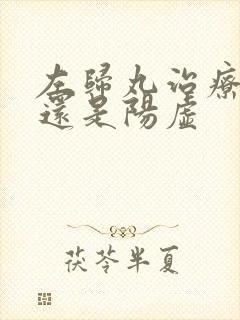 左歸丸治療
還是陽虛
茯苓半夏